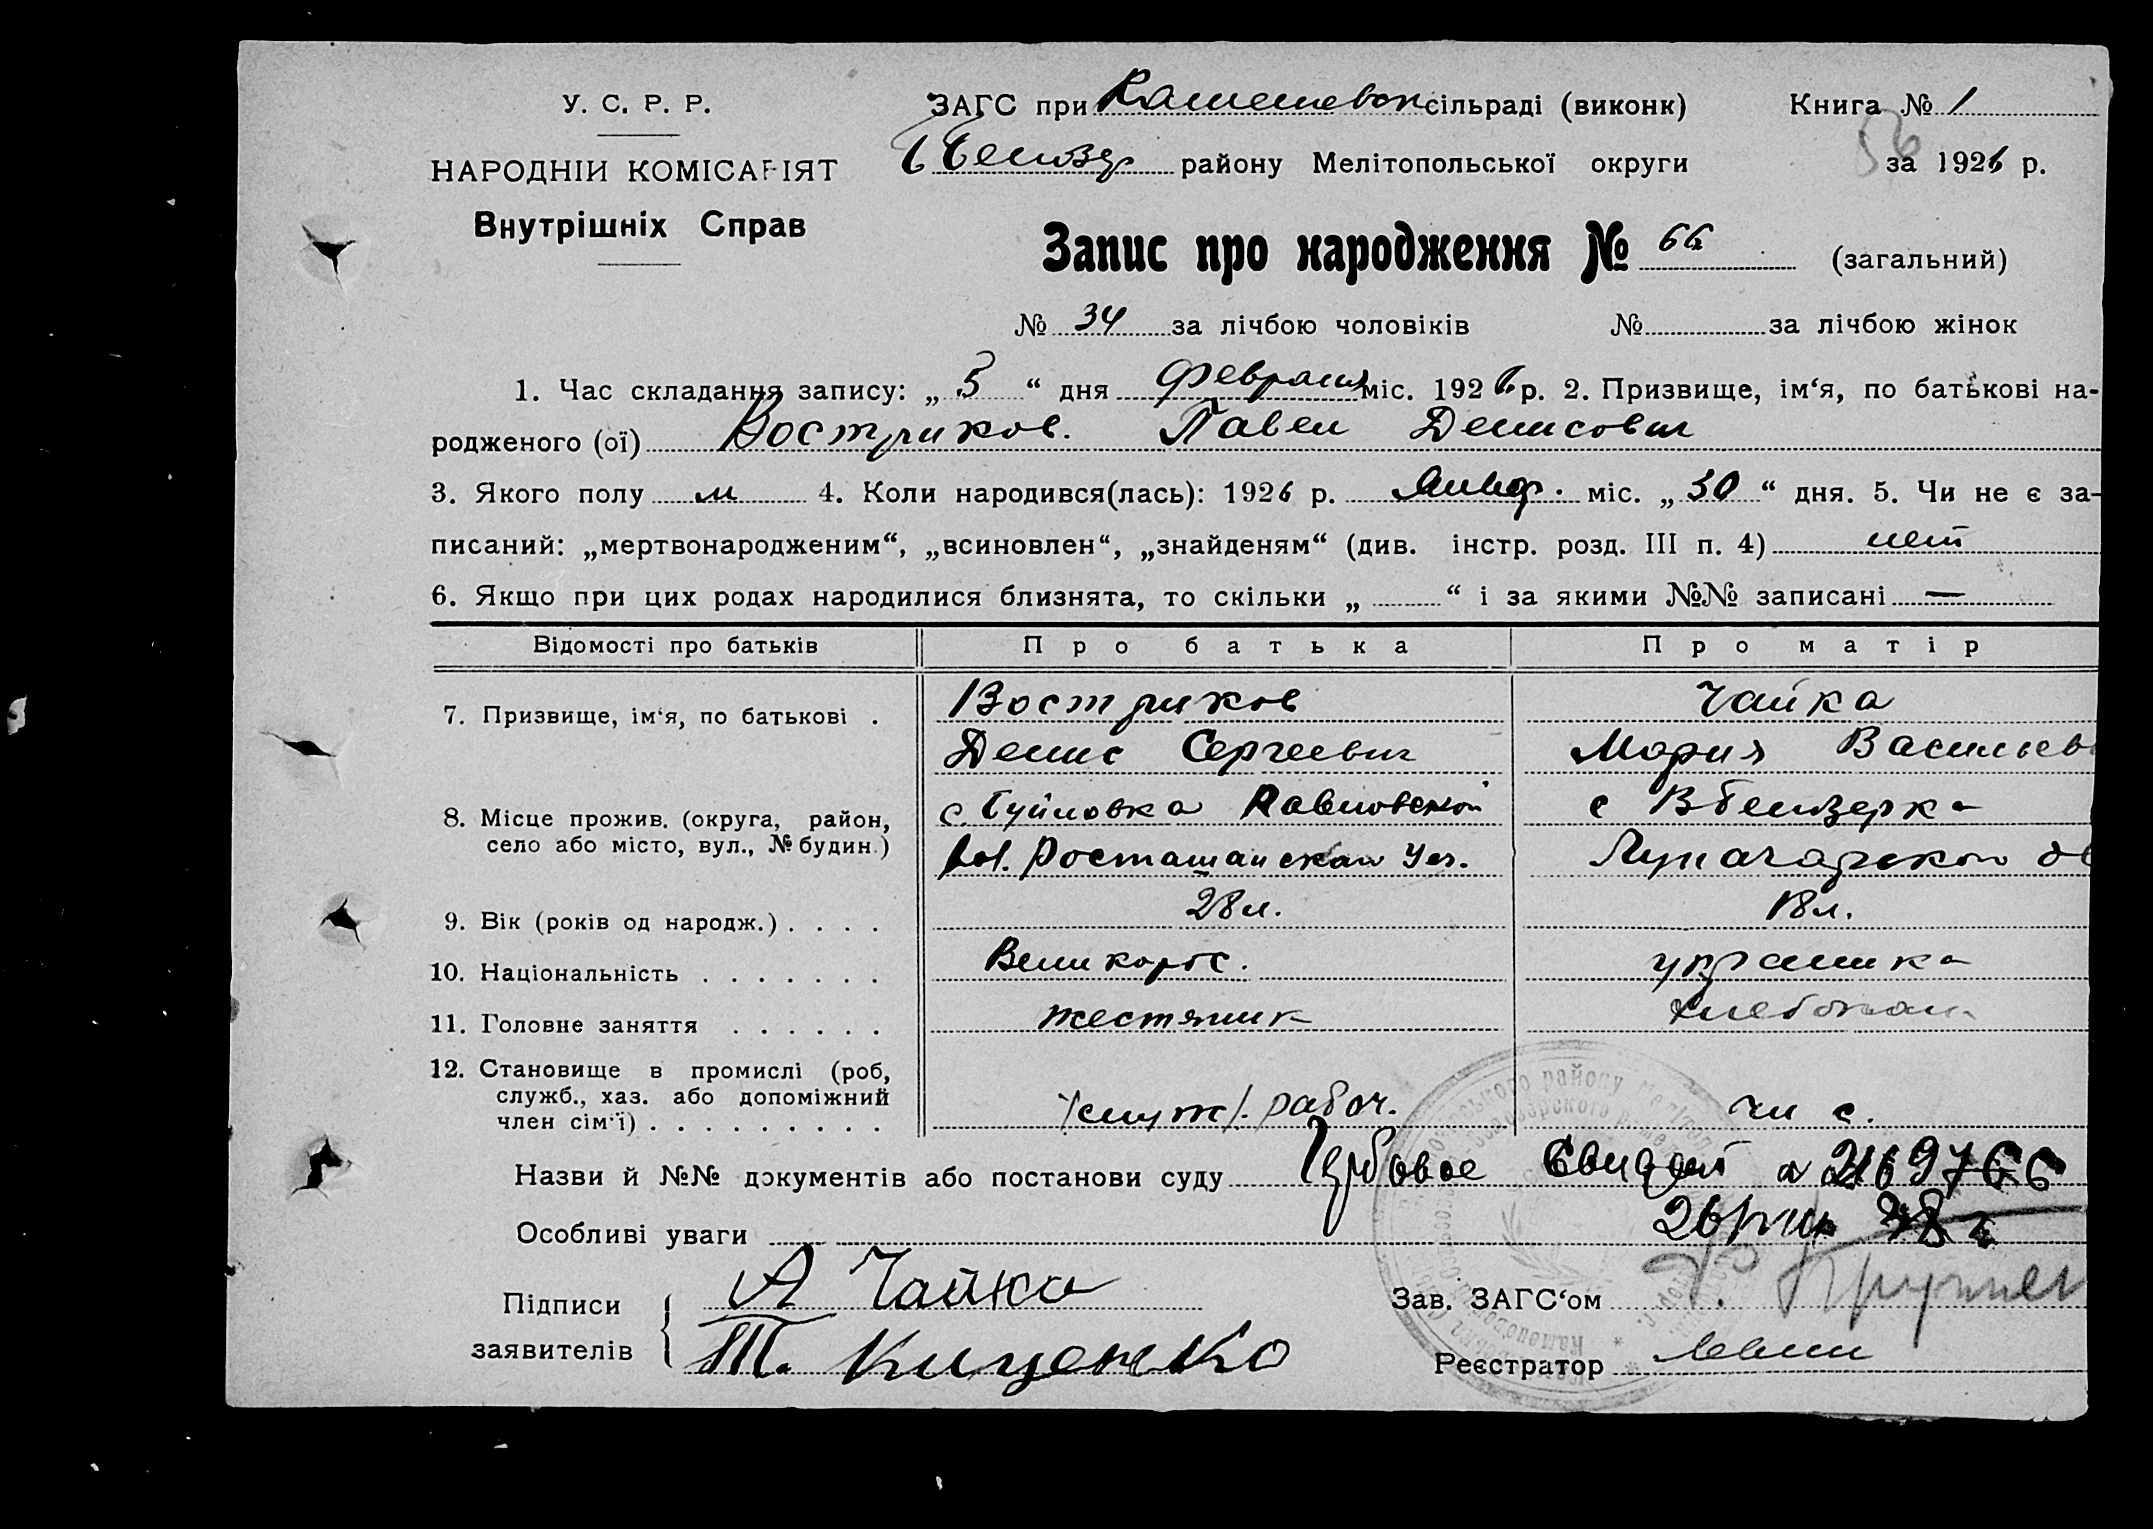 У. С. Р. Р.
НАРОДНІЙ КОМІСАРІЯТ
Внутрішніх Справ
ЗАГС при сільраді (виконк)
району Мелітопольської округи
Книга № 1
56
за 1926 р.
Запис про народження № 66 (загальний)
№ 34 за лічбою чоловіків № за лічбою жінок
1. Час складання запису: „ 5 “ дня февраля міс. 1926 р. 2. Призвище, ім‘я, по батькові на-
родженого (ої) Востриков. Павел Денисович
3. Якого полу м 4. Коли народився(лась): 1926 р. Январ. міс. „ 30 “ дня. 5. Чи не є за-
писаний: „мертвонародженим“, „всиновлен“, „знайденям“ (див. інстр. розд. III п. 4) нет
6. Якщо при цих родах народилися близнята, то скільки „ “ і за якими №№ записані —
Відомості про батьків Про батька Про матір
7. Призвище, ім‘я, по батькові . Востриков Чайка
Денис Сергеевич Мария Васильев
8. Місце прожив. (округа, район, село або місто, вул., № будин.) с. Гуйловка Павловской с Вбелозерка
вол. Росташанской Уез. Луначарского
9. Вік (років од народж.) . . . . 28 л. 18 л.
10. Національність . . . . . . . Великорос. украинка
11. Головне заняття . . . . . . жестяник хлебопаш
12. Становище в промислі (роб, служб., хаз. або допоміжний член сім‘ї) . . . . . . . . . рабоч. чл с.
Назви й №№ документів або постанови суду Гербовое Свидет N 2169766
Особливі уваги
Підписи заявителів
А Чайка
Т. Кищенко
Зав. ЗАГС‘ом
Реєстратор